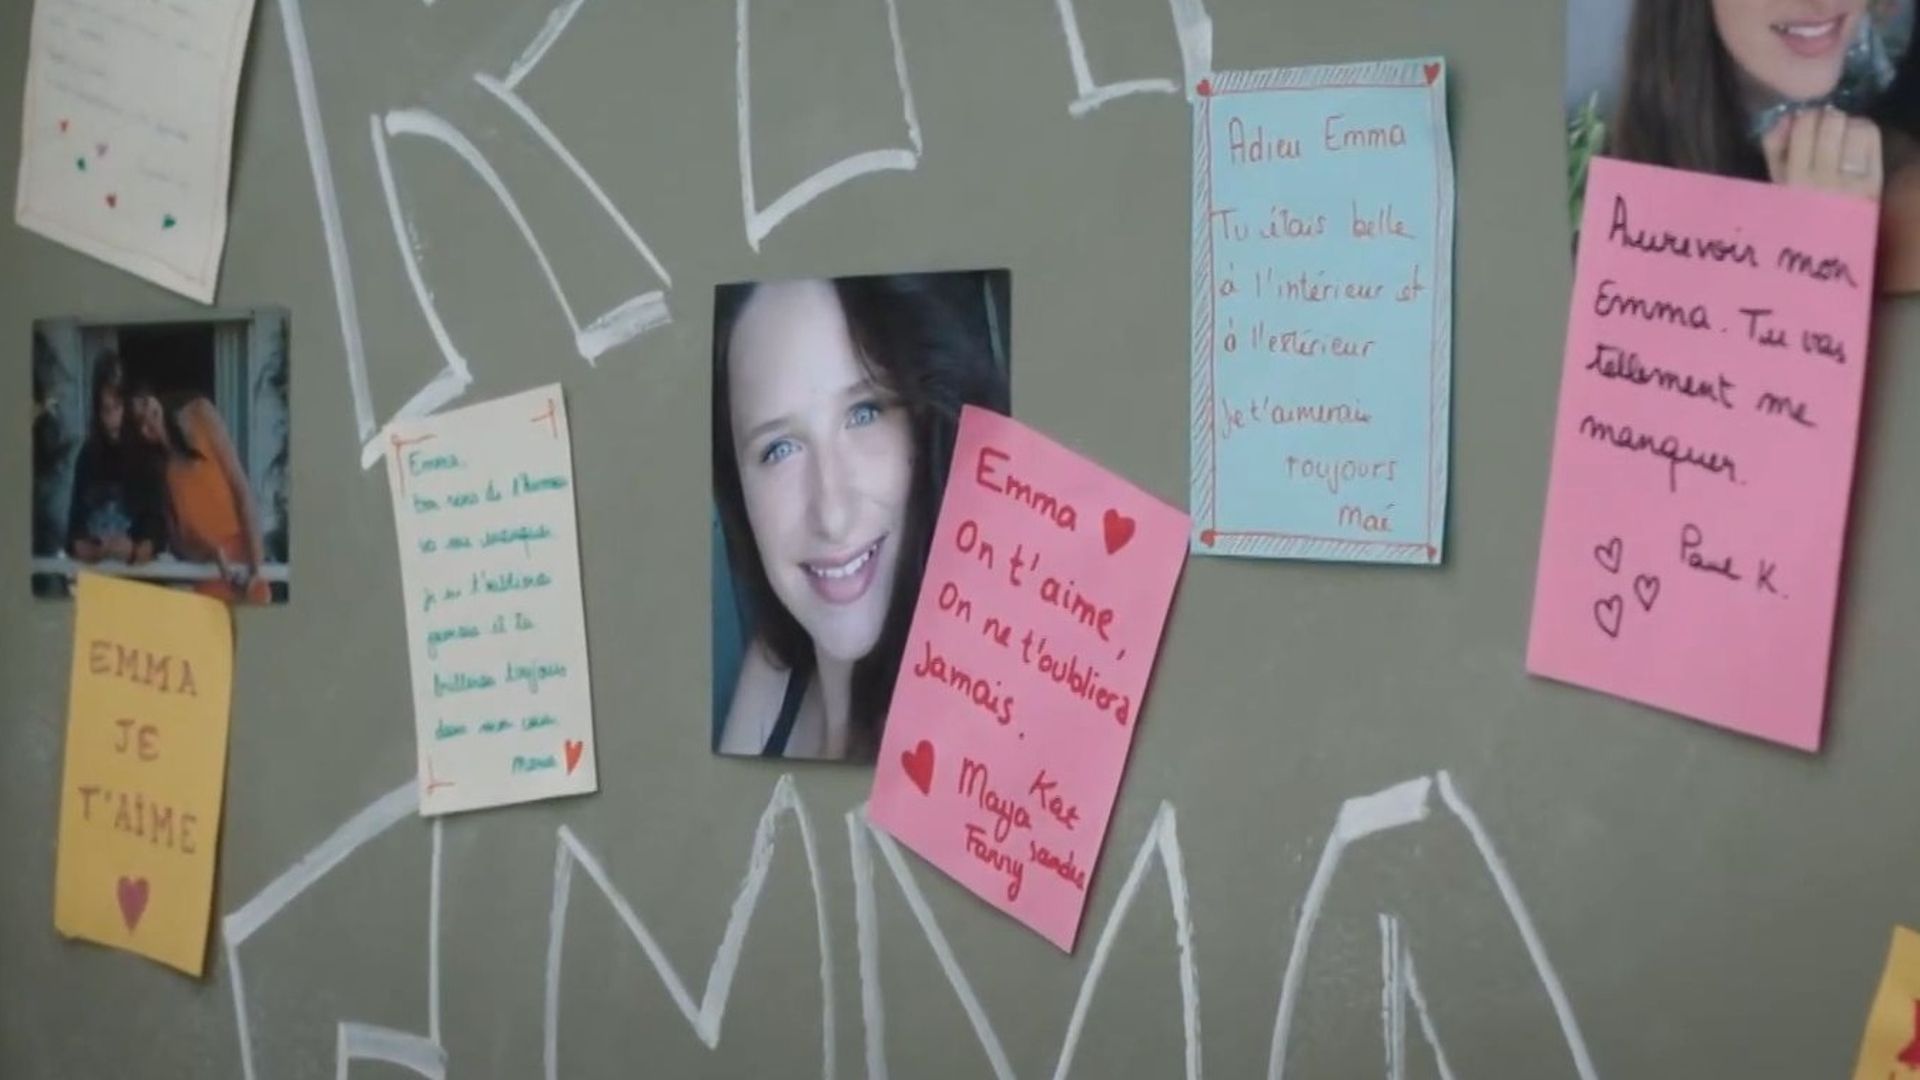 R I P
Adieu Emma
Tu étais belle
à l'intérieur et
à l'extérieur
Je t'aimerais
toujours
Maé
Aurevoir mon
Emma. Tu vas
tellement me
manquer.
Paul K.
Emma.
ton sens de l'humour
va me manquer
je ne t'oublierai
jamais et tu
brilleras toujours
dans mon cœur
Marie
Emma
On t'aime,
On ne t'oubliera
Jamais.
Kat
Maya
Sandra
Fanny
EMMA
JE
T'AIME
EMMA